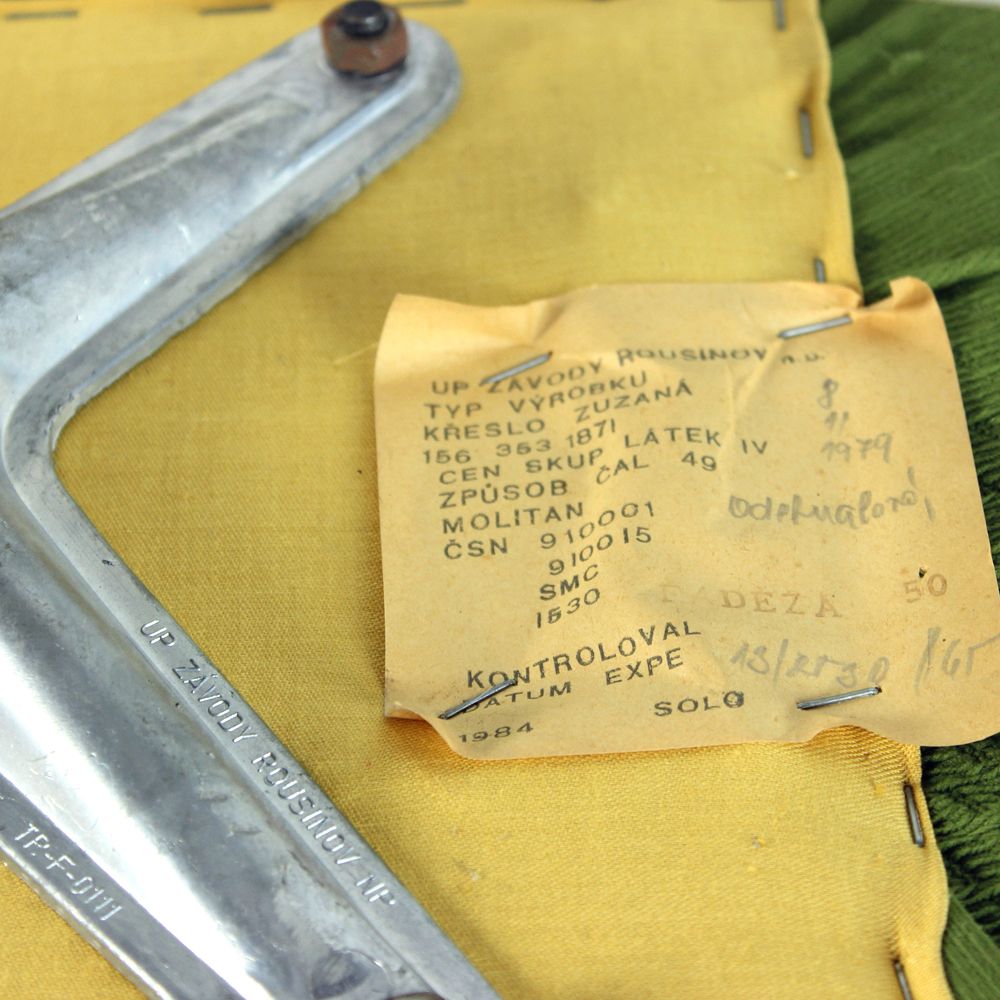 UP ZÁVODY ROUSÍNOV n.p.
TYP VÝROBKU
KŘESLO ZUZANA 8
156 353 1871 11
CEN SKUP LÁTEK IV 1979
ZPŮSOB ČAL 49
MOLITAN
ČSN 910001
910015
SMC
1530
50
KONTROLOVAL
DATUM EXPE
SOLO
1984
UP ZÁVODY ROUSÍNOV NP
TP-F-0111